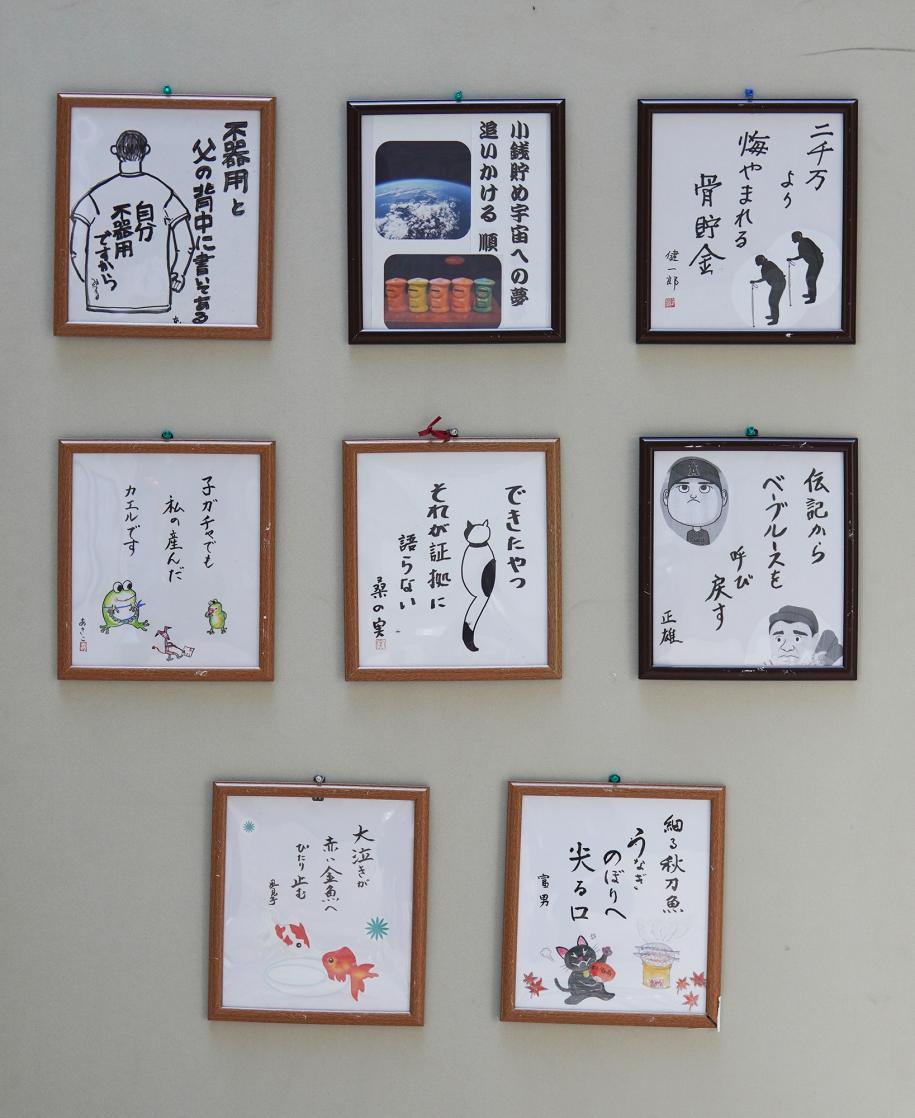 不器用と
父の背中に書いてある
自分
不器用
ですから
小銭貯め宇宙への夢
追いかける 順
二千万
より
悔やまれる
骨貯金
健一郎
子ガチャでも
私の産んだ
カエルです
あきこ
できたやつ
それが証拠に
語らない
桑の実
伝記から
ベーブルースを
呼び
戻す
正雄
大泣きが
赤い金魚へ
ぴたり止む
細る秋刀魚
うなぎ
のぼりへ
尖る口
富男